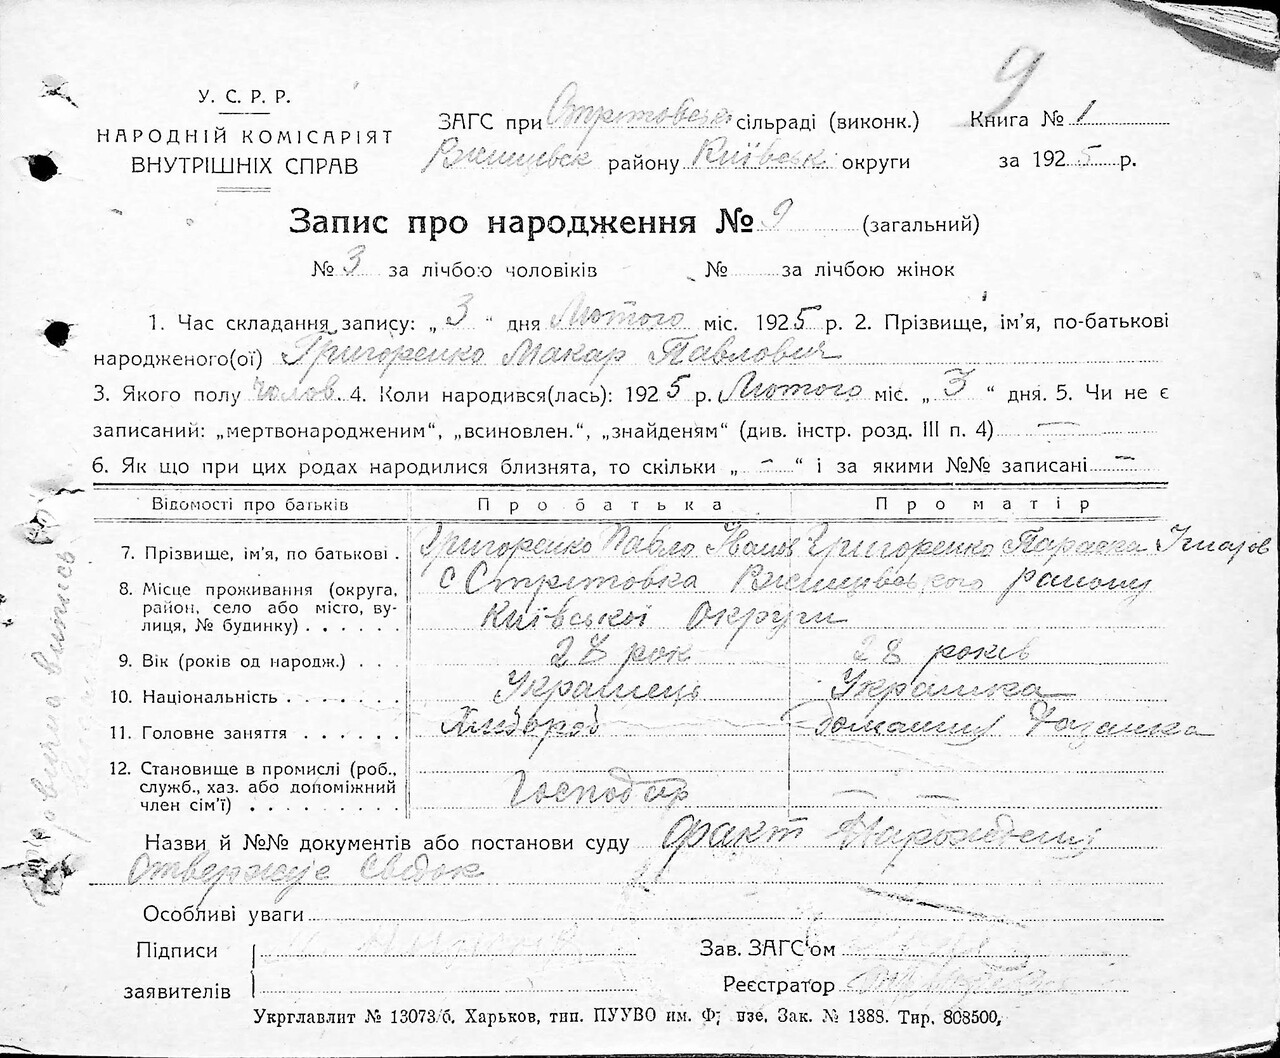 9
У. С. Р. Р.
НАРОДНІЙ КОМІСАРІЯТ
ВНУТРІШНІХ СПРАВ
ЗАГС при Стрітовськ сільраді (виконк.) Книга № 1
Ржищевськ району Київськ округи за 1925 р.
Запис про народження № 9 (загальний)
№ 3 за лічбою чоловіків № за лічбою жінок
1. Час складання запису: „ 3 “ дня Лютого міс. 1925 р. 2. Прізвище, ім’я, по-батькові
народженого(ої) Григоренко Макар Павлович
3. Якого полу чолов. 4. Коли народився(лась): 1925 р. Лютого міс. „ 3 “ дня. 5. Чи не є
записаний: „мертвонародженим“, „всиновлен.“, „знайденям“ (див. інстр. розд. III п. 4) —
6. Як що при цих родах народилися близнята, то скільки „ – “ і за якими №№ записані –
Відомості про батьків Про батька Про матір
7. Прізвище, ім’я, по батькові . Григоренко Павло Іванов Григоренко Параска
8. Місце проживання (округа, район, село або місто, вулиця, № будинку) . . . . . . с Стрітовка Ржищівського району
Київської Округи
9. Вік (років од народж.) . . . 28 рок 28 років
10. Національність . . . . . . . Українець Українка
11. Головне заняття . . . . . . Хлібороб Домашня
12. Становище в промислі (роб., служб., хаз. або допоміжний член сім’ї) . . . . . . . . Господар — —
Назви й №№ документів або постанови суду факт Народження
Отвержує Свідок
Особливі уваги
Підписи Зав. ЗАГС’ом
заявителів Реєстратор
Укрглавлит № 13073/б. Харьков, тип. ПУУВО им. Зак. № 1388. Тир. 808500,